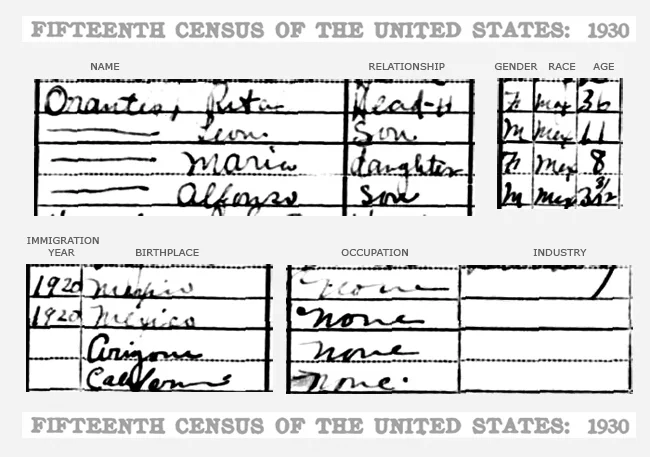 FIFTEENTH CENSUS OF THE UNITED STATES: 1930
NAME RELATIONSHIP GENDER RACE AGE
Orantes, Rita Head-H F Mex 36
Leon Son M Mex 11
Maria daughter F Mex 8
Alfonso son M Mex 3 3/12
IMMIGRATION
YEAR BIRTHPLACE OCCUPATION INDUSTRY
1920 Mexico none
1920 Mexico none
Arizona none
California none.
FIFTEENTH CENSUS OF THE UNITED STATES: 1930